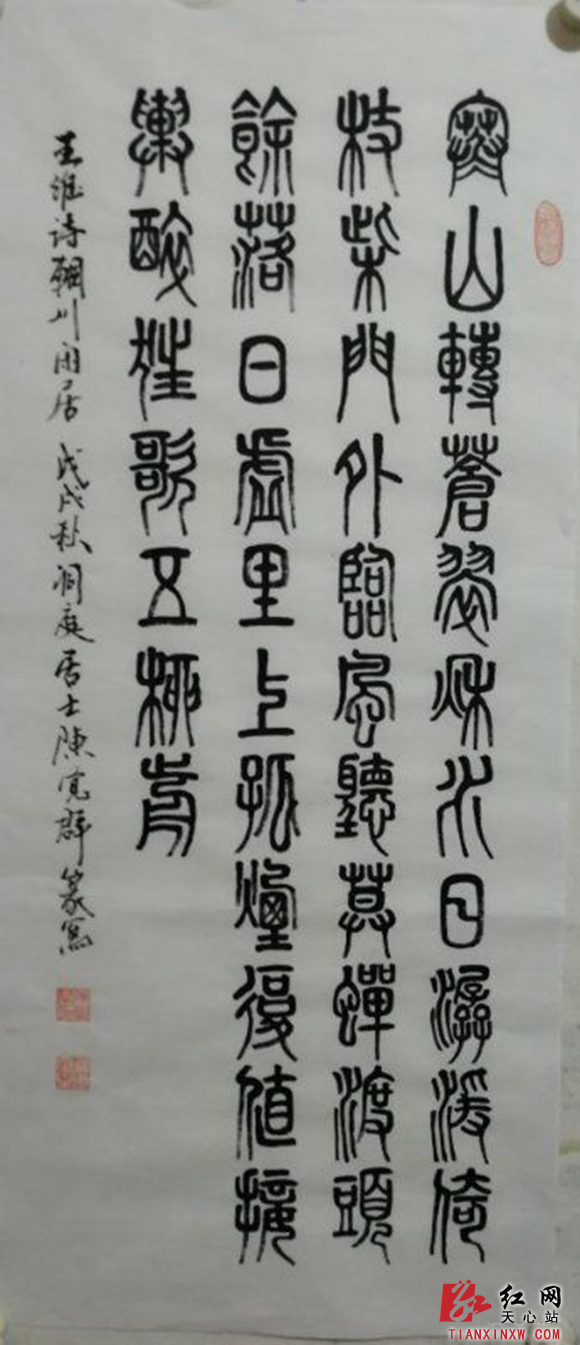 寒山轉蒼翠秋水日潺湲倚
杖柴門外臨風聽莫蟬渡頭
餘落日虛里上孤煙復值接
輿醉狂歌五柳前
王維诗輞川闲居 戊戌秋洞庭居士陳寬群篆寫
红网
天心站
TIANXINXW.COM